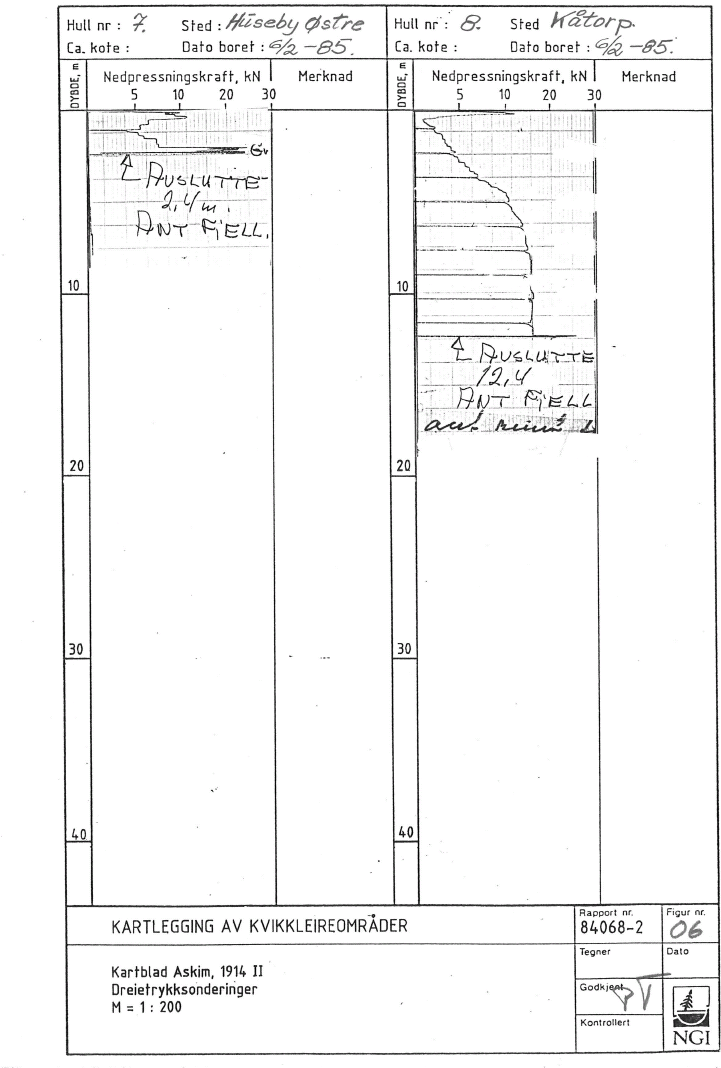 Hull nr : 7. Sted : Huseby Østre
Ca. kote : Dato boret : 6/2 -85.
DYBDE, m
Nedpressningskraft, kN
Merknad
5 10 20 30
AVSLUTTE
2,4 m.
ANT FJELL.
10
20
30
40
Hull nr : 8. Sted Kåtorp.
Ca. kote : Dato boret : 6/2 -85.
DYBDE, m
Nedpressningskraft, kN
Merknad
5 10 20 30
10
AVSLUTTE
12,4
ANT FJELL
20
30
40
KARTLEGGING AV KVIKKLEIREOMRÅDER
Kartblad Askim, 1914 II
Dreietrykksonderinger
M = 1 : 200
Rapport nr.
84068-2
Figur nr.
06
Tegner
Dato
Godkjent
Kontrollert
NGI